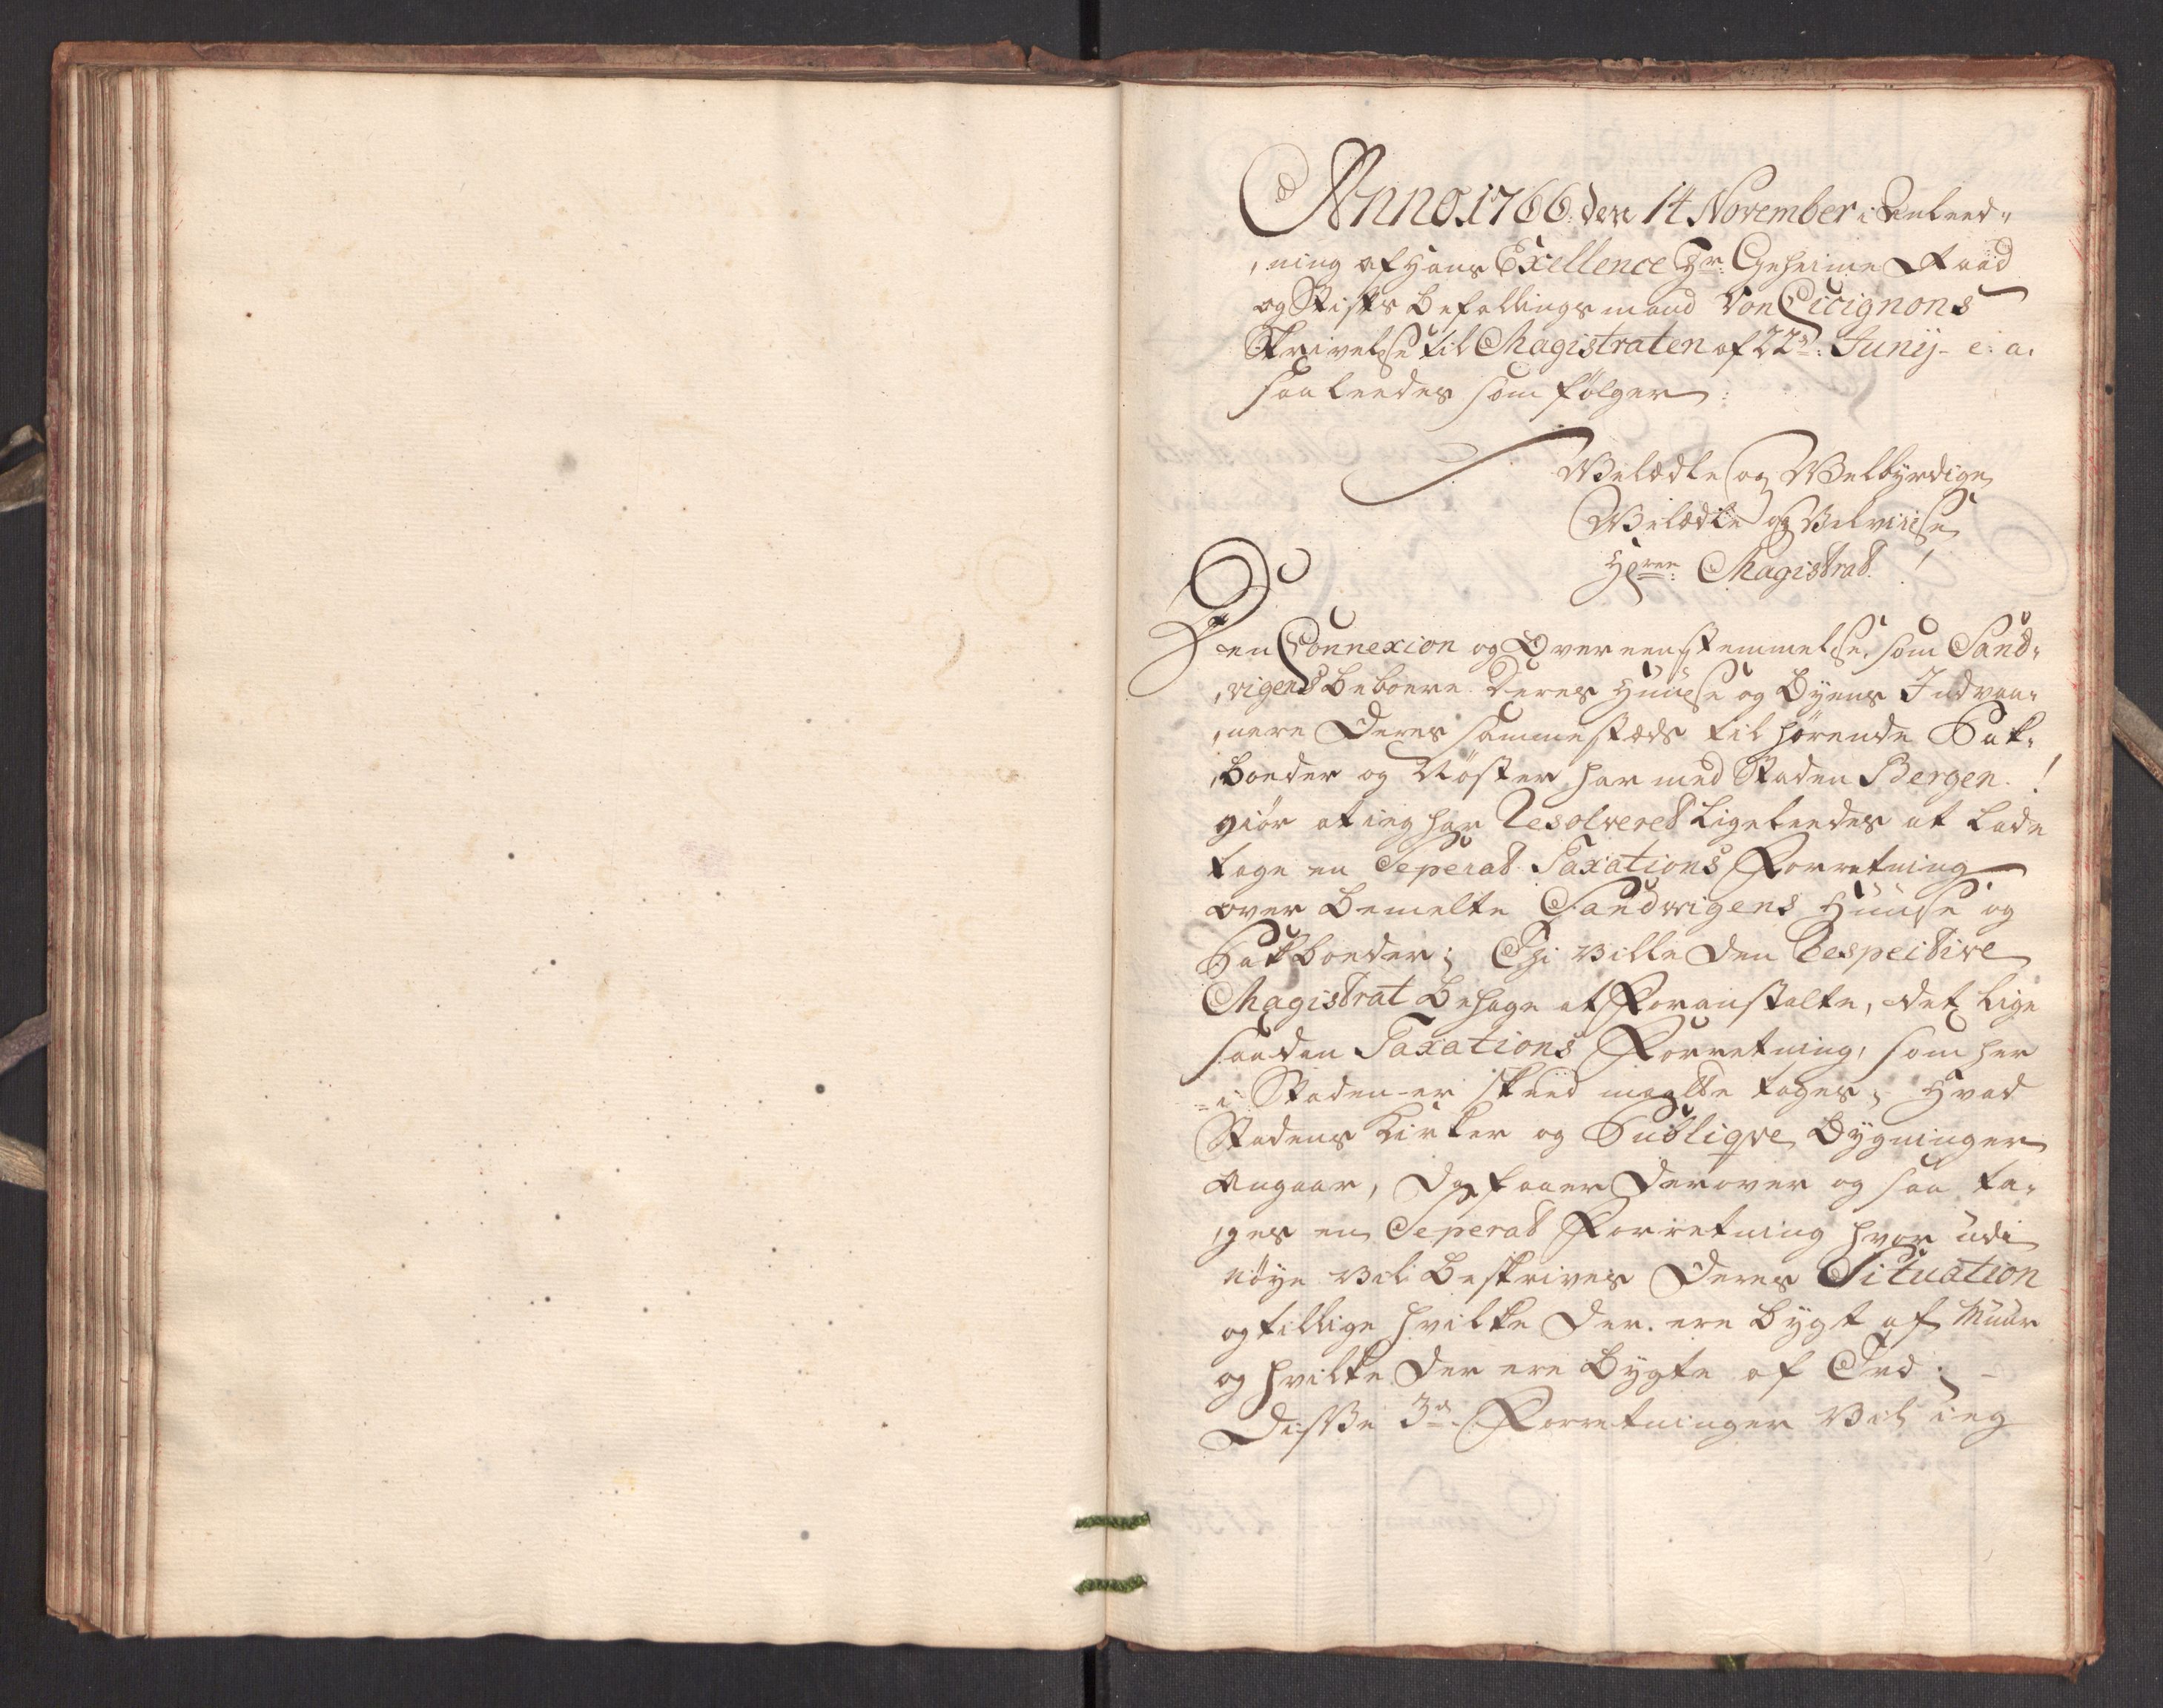 Anno 1766 den 14 November i Anleed-
,ning af Hans Exellence Hr: Geheime Raad
og Stifts Befallings mand Von Cicignons
Skrivelse til Magistraten af 22de: Junij e: a:
saaleedes som følger:
Velædle og Velbyrdige
Velædle og Velviise
Herrer: Magistrat!
Den Connexion og Overeenstemmelse, som Sand-
,vigens Beboere deres Huuse og Byens Indvaa-
,nere deres sammestæds tilhørende Pak-
,boeder og Nøster har med Staden Bergen!
giør at ieg har Resolveret ligeleedes at lade
tage en Seperat Taxations Forretning
over bemelte Sandvigens Huuse og
Pakboeder; Thi ville den Respective
Magistrat behage at Foranstalte, det lige
saadan Taxations Forretning, som her
i Staden er skeed maatte tages; Hvad
Stadens Kirker og Publiqve Bygninger
angaar, da faaer derover og saa ta-
,ges en Seperat Forretning hvor udi
nøye vil beskrives deres Situation
og tillige hvilke der ere bygt af Muur
og hvilke der ere bygte af Træ;
Disse 3de Forretninger vil ieg